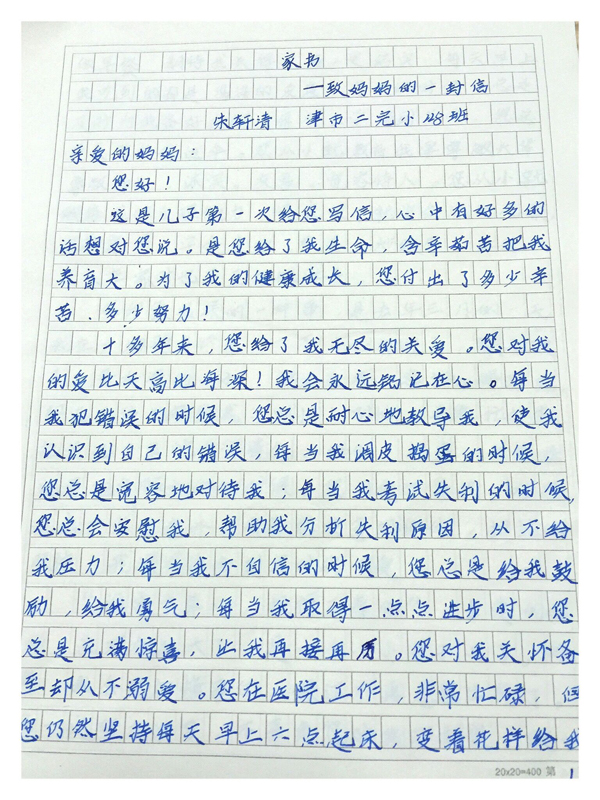 家书
—致妈妈的一封信
朱轩清 津市二完小128班
亲爱的妈妈：
您好！
这是儿子第一次给您写信，心中有好多的
话想对您说。是您给了我生命，含辛茹苦把我
养育大。为了我的健康成长，您付出了多少辛
苦、多少努力！
十多年来，您给了我无尽的关爱。您对我
的爱比天高比海深！我会永远铭记在心。每当
我犯错误的时候，您总是耐心地教导我，使我
认识到自己的错误，每当我调皮捣蛋的时候，
您总是宽容地对待我；每当我考试失利的时候，
您总会安慰我，帮助我分析失利原因，从不给
我压力；每当我不自信的时候，您总是给我鼓
励，给我勇气；每当我取得一点点进步时，您
总是充满惊喜，让我再接再厉。您对我关怀备
至却从不溺爱。您在医院工作，非常忙碌，但
您仍然坚持每天早上六点起床，变着花样给我
20x20=400 第 1